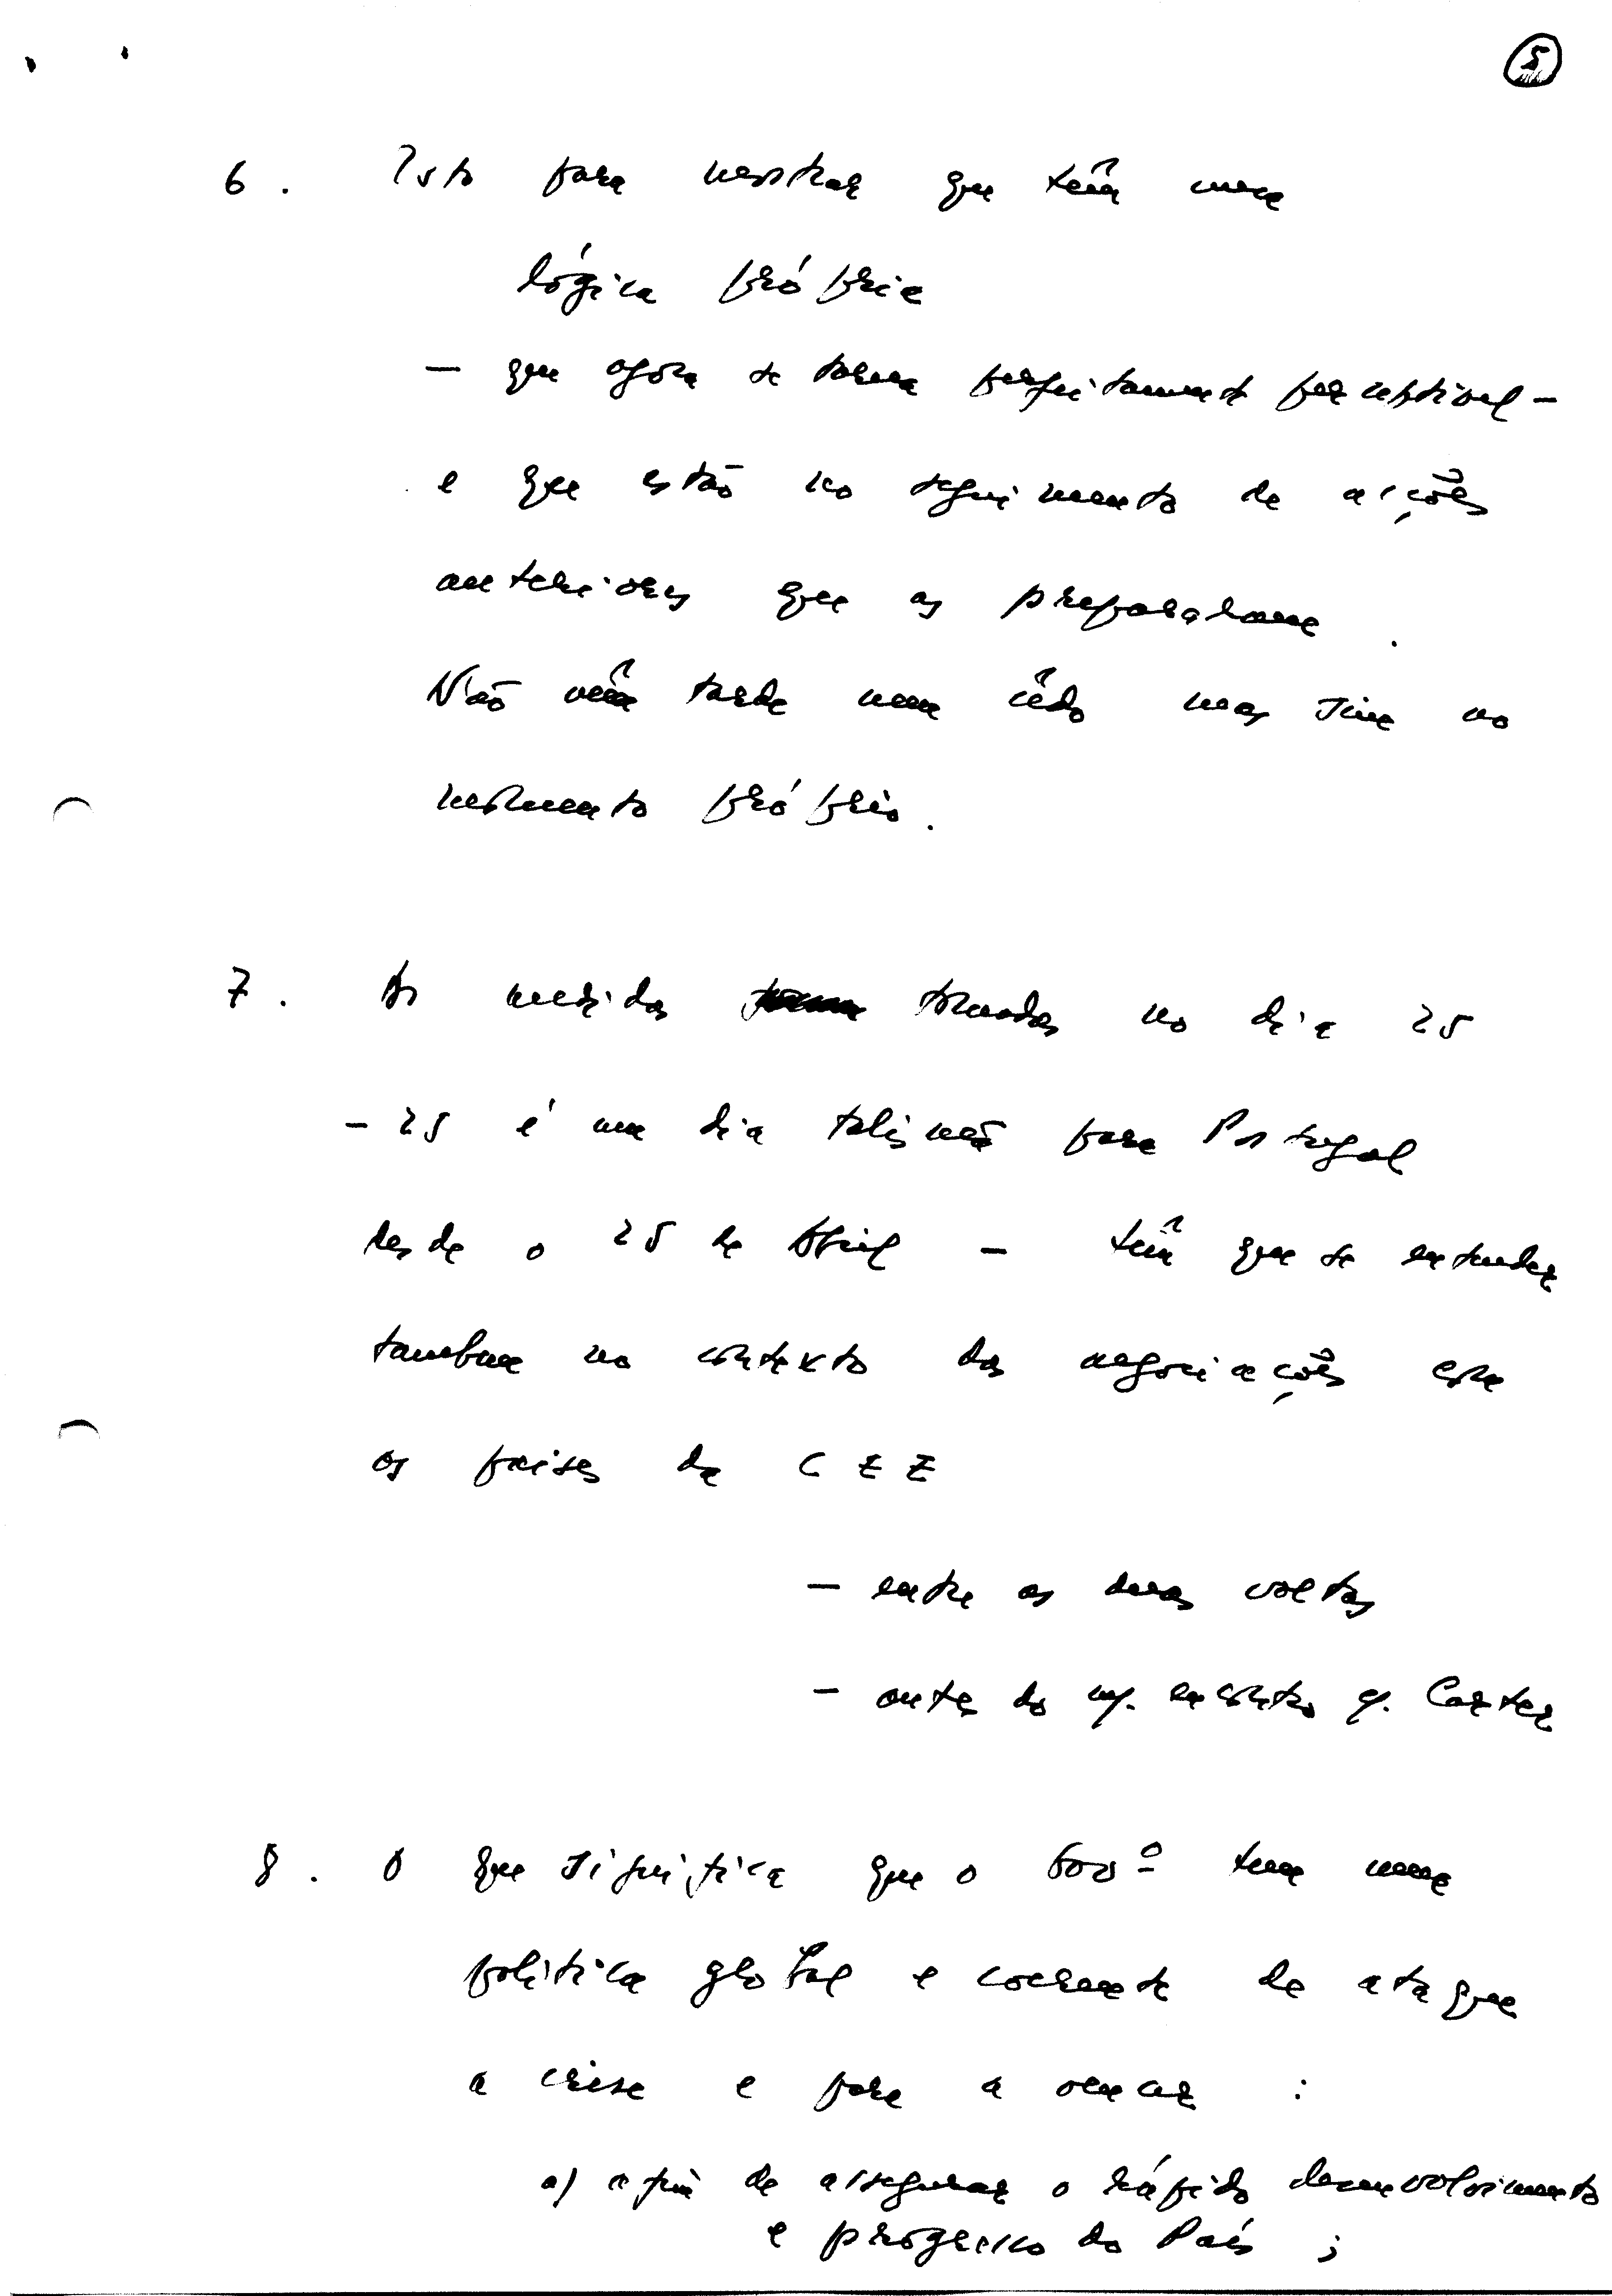 5
6. Isto para mostrar que têm uma
lógica própria
— que agora se torna perfeitamente perceptível —
e que estão no seguimento de acções
anteriores que as prepararam.
Não vêm tarde nem cêdo mas sim no
momento próprio.
7. As medidas tomadas no dia 25
— 25 é um dia talismã para Portugal
desde o 25 de Abril — têm que se entender
tambem no contexto das negociações com
os paises da CEE
— entre as duas voltas
— antes do m/. encontro c/. Carter
8. O que significa que o Govº tem uma
politica global e coerente de ataque
a crise e para a vencer :
a) a fim de assegurar o rápido desenvolvimento
e progresso do País ;